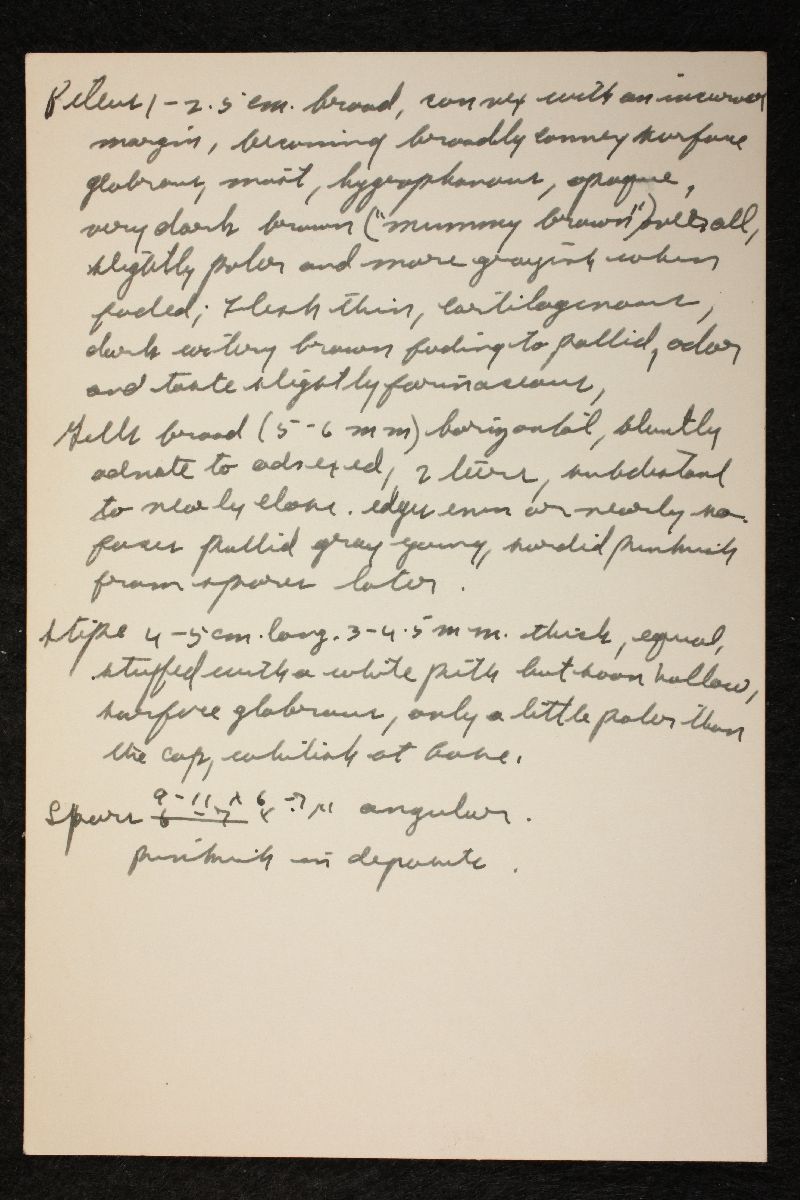 Pileus 1-2.5 cm. broad, convex with an incurved
margin, becoming broadly convex surface
glabrous, moist, hygrophanous, opaque,
very dark brown ("mummy brown") over all,
slightly paler and more grayish when
faded; flesh thin, cartilaginous,
dark watery brown fading to pallid, odor
and taste slightly farinaceous,
Gills broad (5-6 mm) horizontal, bluntly
adnate to adnexed, 2 tiers, subdistant
to nearly close. edges even or nearly so.
faces pallid gray young, sordid pinkish
from spores later.
Stipe 4-5 cm. long. 3-4.5 mm. thick, equal,
stuffed with a white pith but soon hollow,
surface glabrous, only a little paler than
the cap, whitish at base.
Spores 9-11 x 6-7 µ angular.
pinkish in deposits.